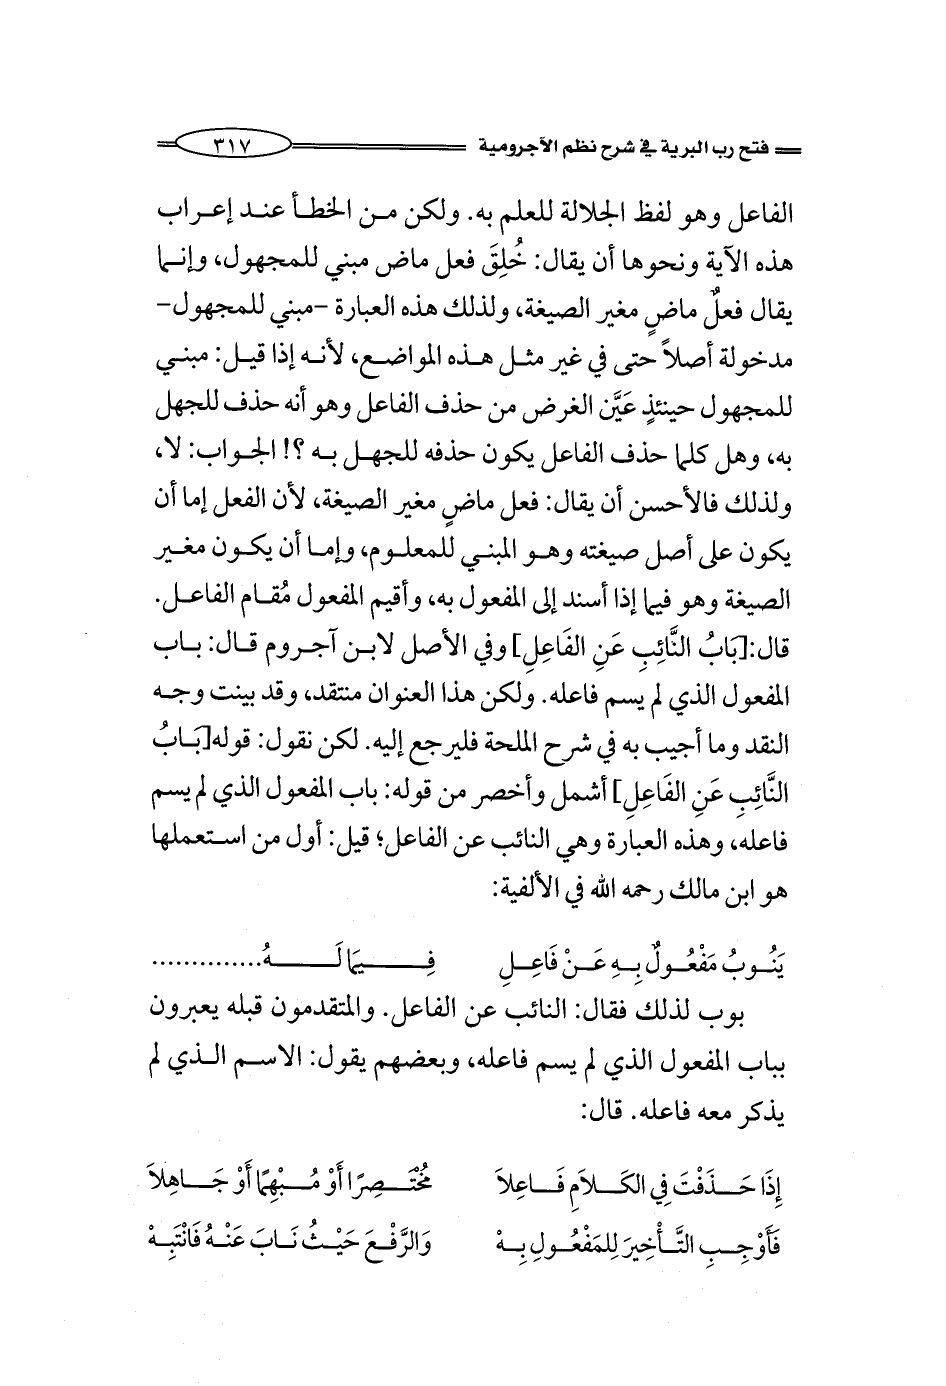 فتح رب البرية في شرح نظم الآجرومية ٣١٧
الفاعل وهو لفظ الجلالة للعلم به. ولكن من الخطأ عند إعراب
هذه الآية ونحوها أن يقال: خُلِقَ فعل ماض مبني للمجهول، وإنما
يقال فعلٌ ماضٍ مغير الصيغة، ولذلك هذه العبارة -مبني للمجهول-
مدخولة أصلاً حتى في غير مثل هذه المواضع، لأنه إذا قيل: مبني
للمجهول حينئذٍ عَيَّن الغرض من حذف الفاعل وهو أنه حذف للجهل
به، وهل كلما حذف الفاعل يكون حذفه للجهل به ؟! الجواب: لا،
ولذلك فالأحسن أن يقال: فعل ماضٍ مغير الصيغة، لأن الفعل إما أن
يكون على أصل صيغته وهو المبني للمعلوم، وإما أن يكون مغير
الصيغة وهو فيما إذا أسند إلى المفعول به، وأقيم المفعول مُقام الفاعل.
قال:[بَابُ النَّائِبِ عَنِ الفَاعِلِ] وفي الأصل لابن آجروم قال: باب
المفعول الذي لم يسم فاعله. ولكن هذا العنوان منتقد، وقد بينت وجه
النقد وما أجيب به في شرح الملحة فليرجع إليه. لكن نقول: قوله[بَابُ
النَّائِبِ عَنِ الفَاعِلِ] أشمل وأخصر من قوله: باب المفعول الذي لم يسم
فاعله، وهذه العبارة وهي النائب عن الفاعل؛ قيل: أول من استعملها
هو ابن مالك رحمه الله في الألفية:
يَنُوبُ مَفْعُولٌ بِهِ عَنْ فَاعِلِ فِيمَا لَهُ..............
بوب لذلك فقال: النائب عن الفاعل. والمتقدمون قبله يعبرون
بباب المفعول الذي لم يسم فاعله، وبعضهم يقول: الاسم الذي لم
يذكر معه فاعله. قال:
إِذَا حَذَفْتَ فِي الكَلاَمِ فَاعِلاَ مُخْتَصِرًا أَوْ مُبْهِمًا أَوْ جَاهِلاَ
فَأَوْجِبِ التَّأْخِيرَ لِلمَفْعُولِ بِهْ وَالرَّفْعَ حَيْثُ نَابَ عَنْهُ فَانْتَبِهْ